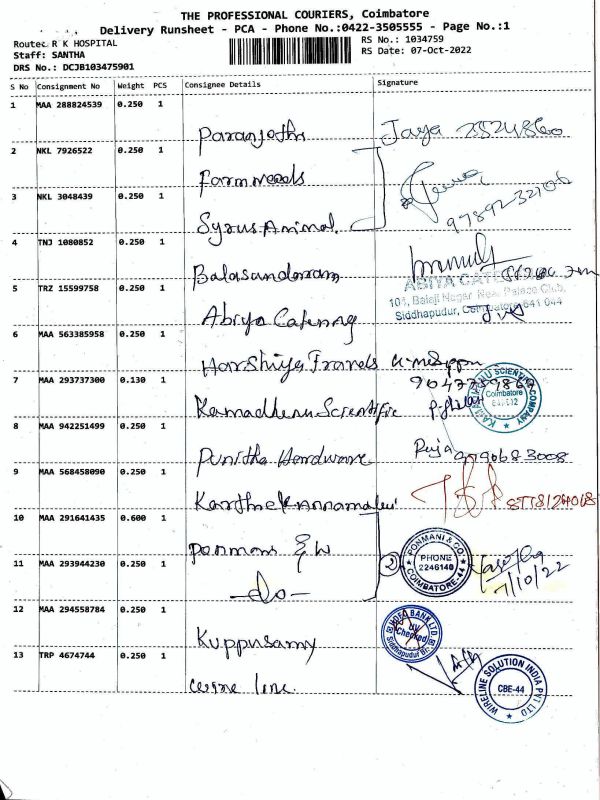 THE PROFESSIONAL COURIERS, Coimbatore
Delivery Runsheet - PCA - Phone No.:0422-3505555 - Page No.:1
Route: R K HOSPITAL
RS No.: 1034759
Staff: SANTHA
RS Date: 07-Oct-2022
DRS No.: DCJB103475901
S No Consignment No Weight PCS Consignee Details Signature
1 MAA 288824539 0.250 1
Paranjothi Jaya
2 NKL 7926522 0.250 1
Farm needs
3 NKL 3048439 0.250 1
Syrus Animal.
4 TNJ 1080852 0.250 1
Balasundaram
5 TRZ 15599758 0.250 1
ABIYA CATERING
101, Balaji Nagar New Palace Club,
Siddhapudur, Coimbatore-641 044
Abiya Catering
6 MAA 563385958 0.250 1
Harshiya Travels
7 MAA 293737300 0.130 1
KAMADHENU SCIENTIFIC COMPANY
Coimbatore
641 012
Kamadhenu Scientific
8 MAA 942251499 0.250 1
Punitha Hardware Puja
9 MAA 568458090 0.250 1
Karthick Annamalai
10 MAA 291641435 0.600 1
Ponmani & Co
11 MAA 293944230 0.250 1
2
PONMANI & CO
PHONE
2246140
COIMBATORE-44
7/10/22
-do-
12 MAA 294558784 0.250 1
HDFC BANK LTD
Checked
Siddhapudur Br.
Kuppusamy
13 TRP 4674744 0.250 1
WIRELINE SOLUTION INDIA PVT LTD
CBE-44
wire line.